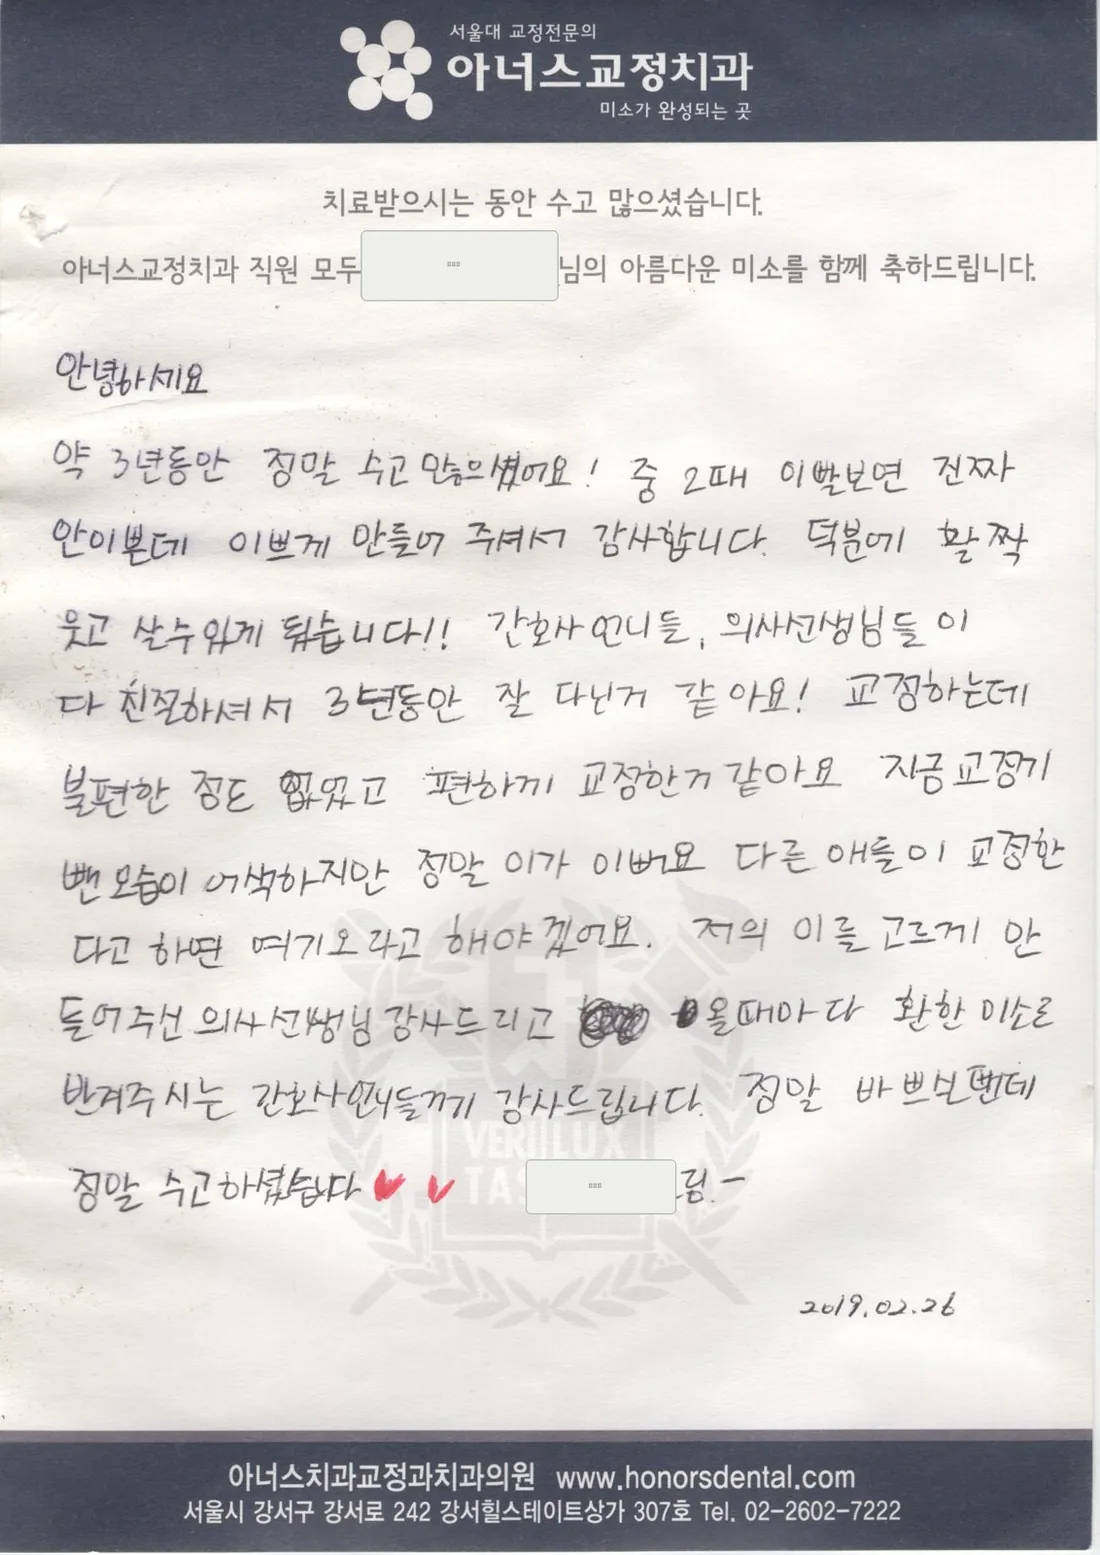 서울대 교정전문의
아너스교정치과
미소가 완성되는 곳
치료받으시는 동안 수고 많으셨습니다.
아너스교정치과 직원 모두 님의 아름다운 미소를 함께 축하드립니다.
안녕하세요
약 3년동안 정말 수고 많으셨어요! 중 2때 이빨보면 진짜
안이쁜데 이쁘게 만들어 주셔서 감사합니다. 덕분에 활짝
웃고 살수있게 됬습니다!! 간호사 언니들, 의사선생님들이
다 친절하셔서 3년동안 잘 다닌거 같아요! 교정하는데
불편한 점도 없었고 편하게 교정한거 같아요 지금 교정기
뺀 모습이 어색하지만 정말 이가 이뻐요 다른 애들이 교정한
다고 하면 여기오라고 해야겠어요. 저의 이를 고르게 만
들어주신 의사선생님 감사드리고 올때마다 환한 미소로
반겨주시는 간호사언니들께 감사드립니다. 정말 바쁘실텐데
정말 수고하셨습니다 림.-
VERI LUX
TAS
2019.02.26
아너스치과교정과치과의원 www.honorsdental.com
서울시 강서구 강서로 242 강서힐스테이트상가 307호 Tel. 02-2602-7222